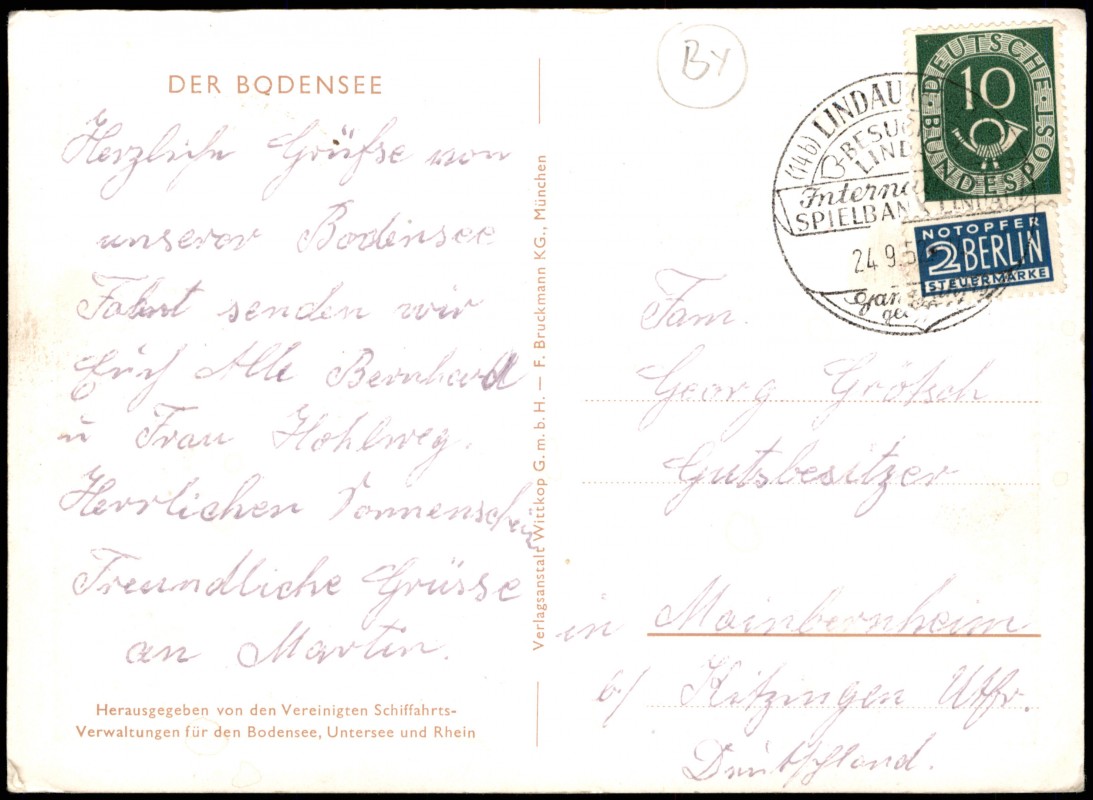 DER BODENSEE
Herzliche Grüße von
unserer Bodensee
Fahrt senden wir
Euch Alle Bernhard
u Frau Hohlweg.
Herrlichen Sonnenschein
Freundliche Grüsse
an Martin.
Herausgegeben von den Vereinigten Schiffahrts-
Verwaltungen für den Bodensee, Untersee und Rhein
Verlagsanstalt Wittkop G.m.b.H. — F. Bruckmann KG., München
BY
(14b) LINDAU
BESUCH
LIND
Interna
SPIELBANK LINDAU
24 9.5
ganzjährig
geö
DEUTSCHE BUNDESPOST
10
NOTOPFER
2 BERLIN
STEUERMARKE
Fam.
Georg Grötsch
Gutsbesitzer
in Mainbernheim
b/ Kitzingen Utfr.
Deutschland.